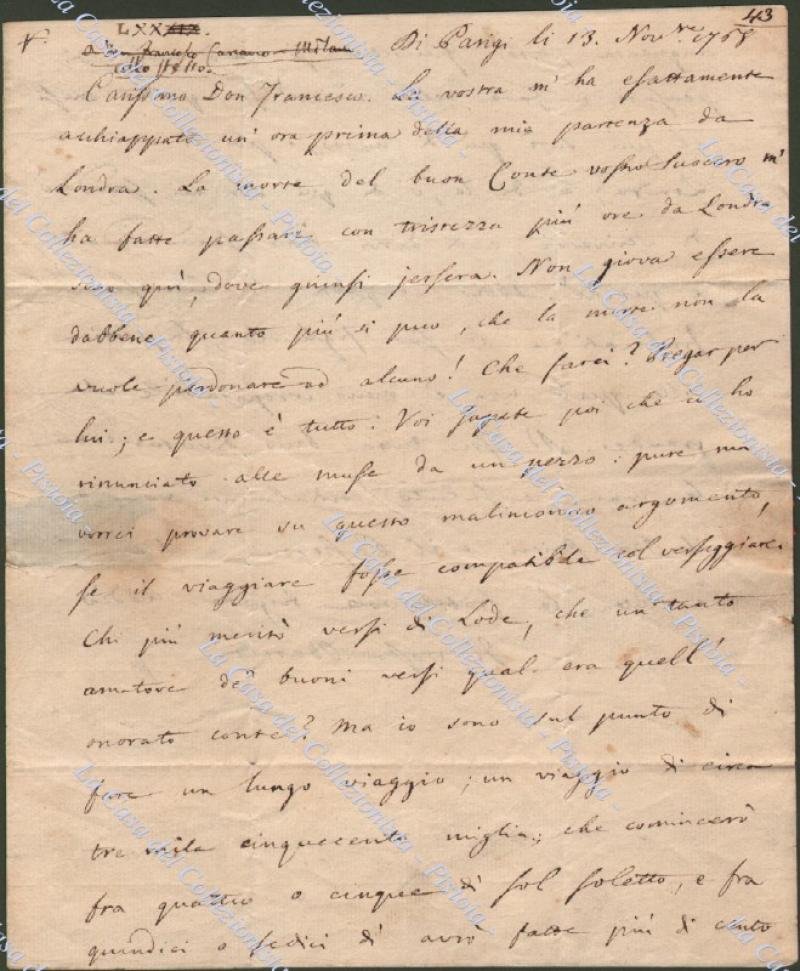 43
LXXIIX.
a Don Francesco Carcano - Milano
allo stesso.
Di Parigi li 13. Nov.re 1768
Carissimo Don Francesco. La vostra m' ha esattamente
acchiappato un' ora prima della mia partenza da
Londra. La morte del buon Conte vostro Suocero m'
ha fatte passare con tristezza più ore da Londra
sino quì, dove giunsi jersera. Non giova essere
dabbene quanto più si può, che la morte non la
vuole perdonare ad alcuno! Che farci? Pregar per
lui; e questo è tutto. Voi sapete poi che io ho
rinunciato alle muse da un pezzo: pure
vorrei provare su questo malinconico argomento,
se il viaggiare fosse compatibile col verseggiare.
Chi più meritò versi di Lode, che un tanto
amatore de' buoni versi qual era quell'
onorato conte? Ma io sono sul punto di
fare un lungo viaggio; un viaggio di circa
tre mila cinquecento miglia; che comincerò
fra quattro o cinque dì sol soletto, e fra
quindici o sedici dì avrò fatte più di cento
La Casa del Collezionista - Pistoia -